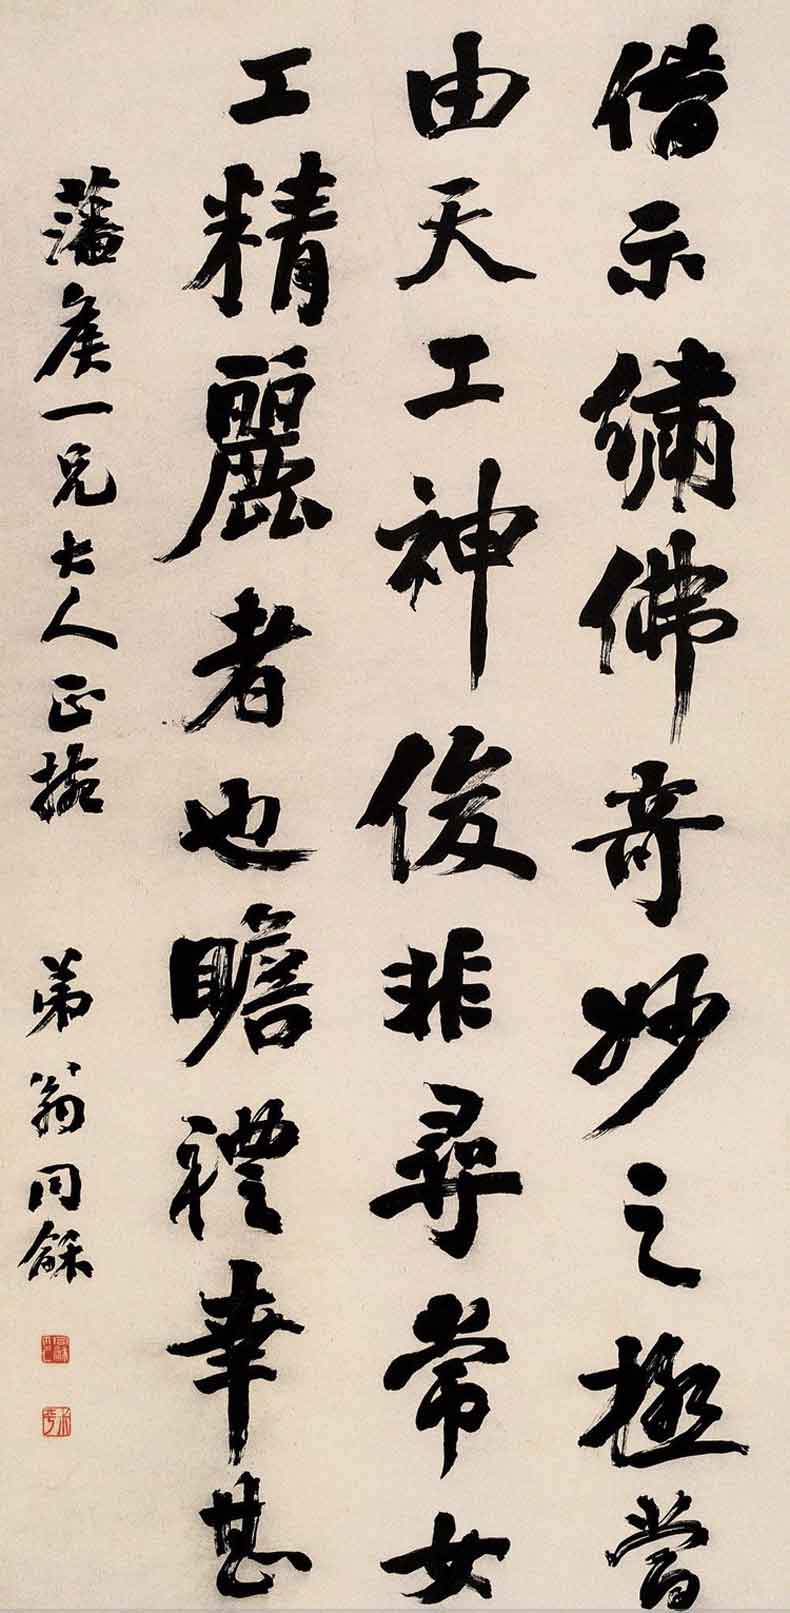 借示繡佛奇妙之極當
由天工神俊非尋常女
工精麗者也瞻禮幸甚
藩侯一兄大人正擬
弟翁同龢